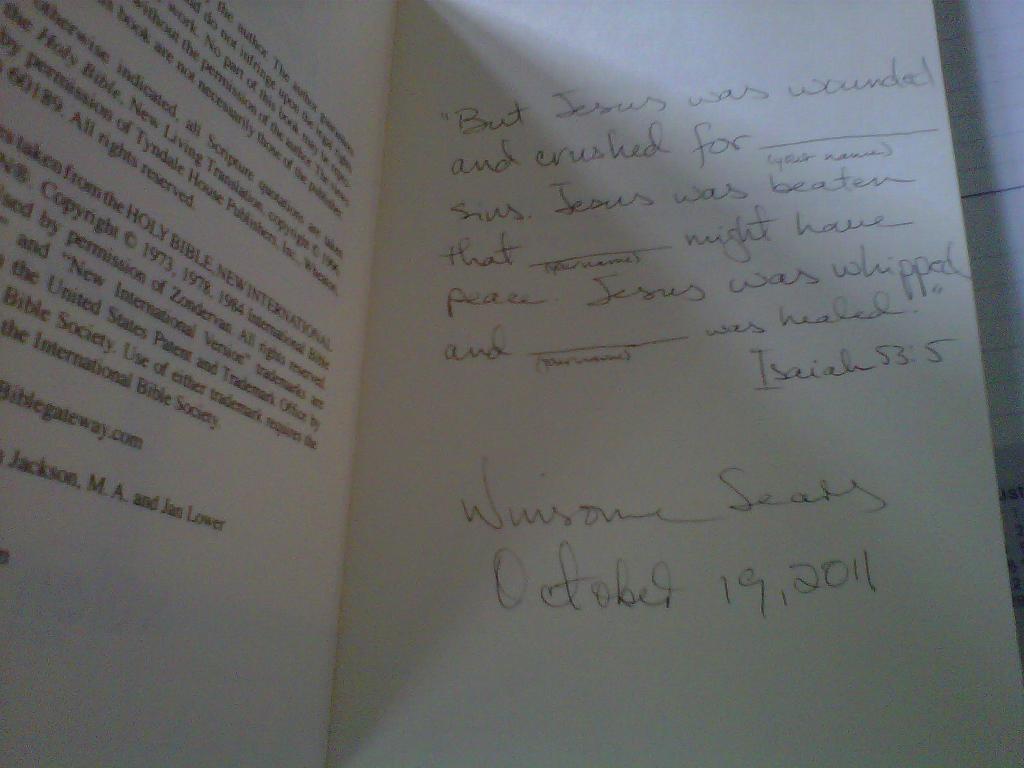 the author. The author guarantees
and do not infringe upon the legal rights
work. No part of this book may be
without the permission of the author. The views
book are not necessarily those of the publisher.
otherwise indicated, all Scripture quotations are taken
the Holy Bible, New Living Translation, copyright © 1996.
by permission of Tyndale House Publishers, Inc., Wheaton,
60189. All rights reserved.
taken from the HOLY BIBLE, NEW INTERNATIONAL
Copyright © 1973, 1978, 1984 International Bible
by permission of Zondervan. All rights reserved.
and "New International Version" trademarks are
the United States Patent and Trademark Office by
Bible Society. Use of either trademark requires the
the International Bible Society.
Biblegateway.com
Jackson, M. A. and Jan Lower
"But Jesus was wounded
and crushed for
(your name)
sins. Jesus was beaten
that might have
(your name)
peace. Jesus was whipped
and was healed."
(your name)
Isaiah 53:5
Winsome Sears
October 19, 2011